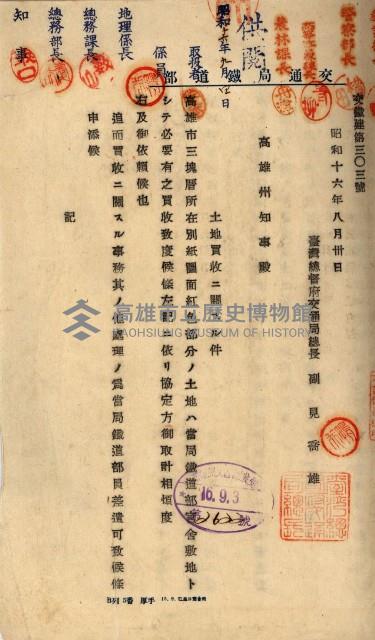 交通局鐵道部
供閱
警察部長
農林課長
取扱者
係員
地理係長
總務課長
總務部長
知事
交鐵建第三〇三號
昭和十六年八月卅日
臺灣總督府交通局總長 副見喬雄
高雄州知事殿
土地買收ニ關スル件
高雄市三塊厝所在別紙圖面紅色部分ノ土地ハ當局鐵道部宿舍敷地ト
シテ必要有之買收致度候條左記ニ依リ協定方御取計相煩度
右及御依賴候也
追而買收ニ關スル事務其ノ他處理ノ爲當局鐵道部員差遣可致候條
申添候
記
16.9.3
高雄市立歷史博物館
KAOHSIUNG MUSEUM OF HISTORY
B列5番 厚手